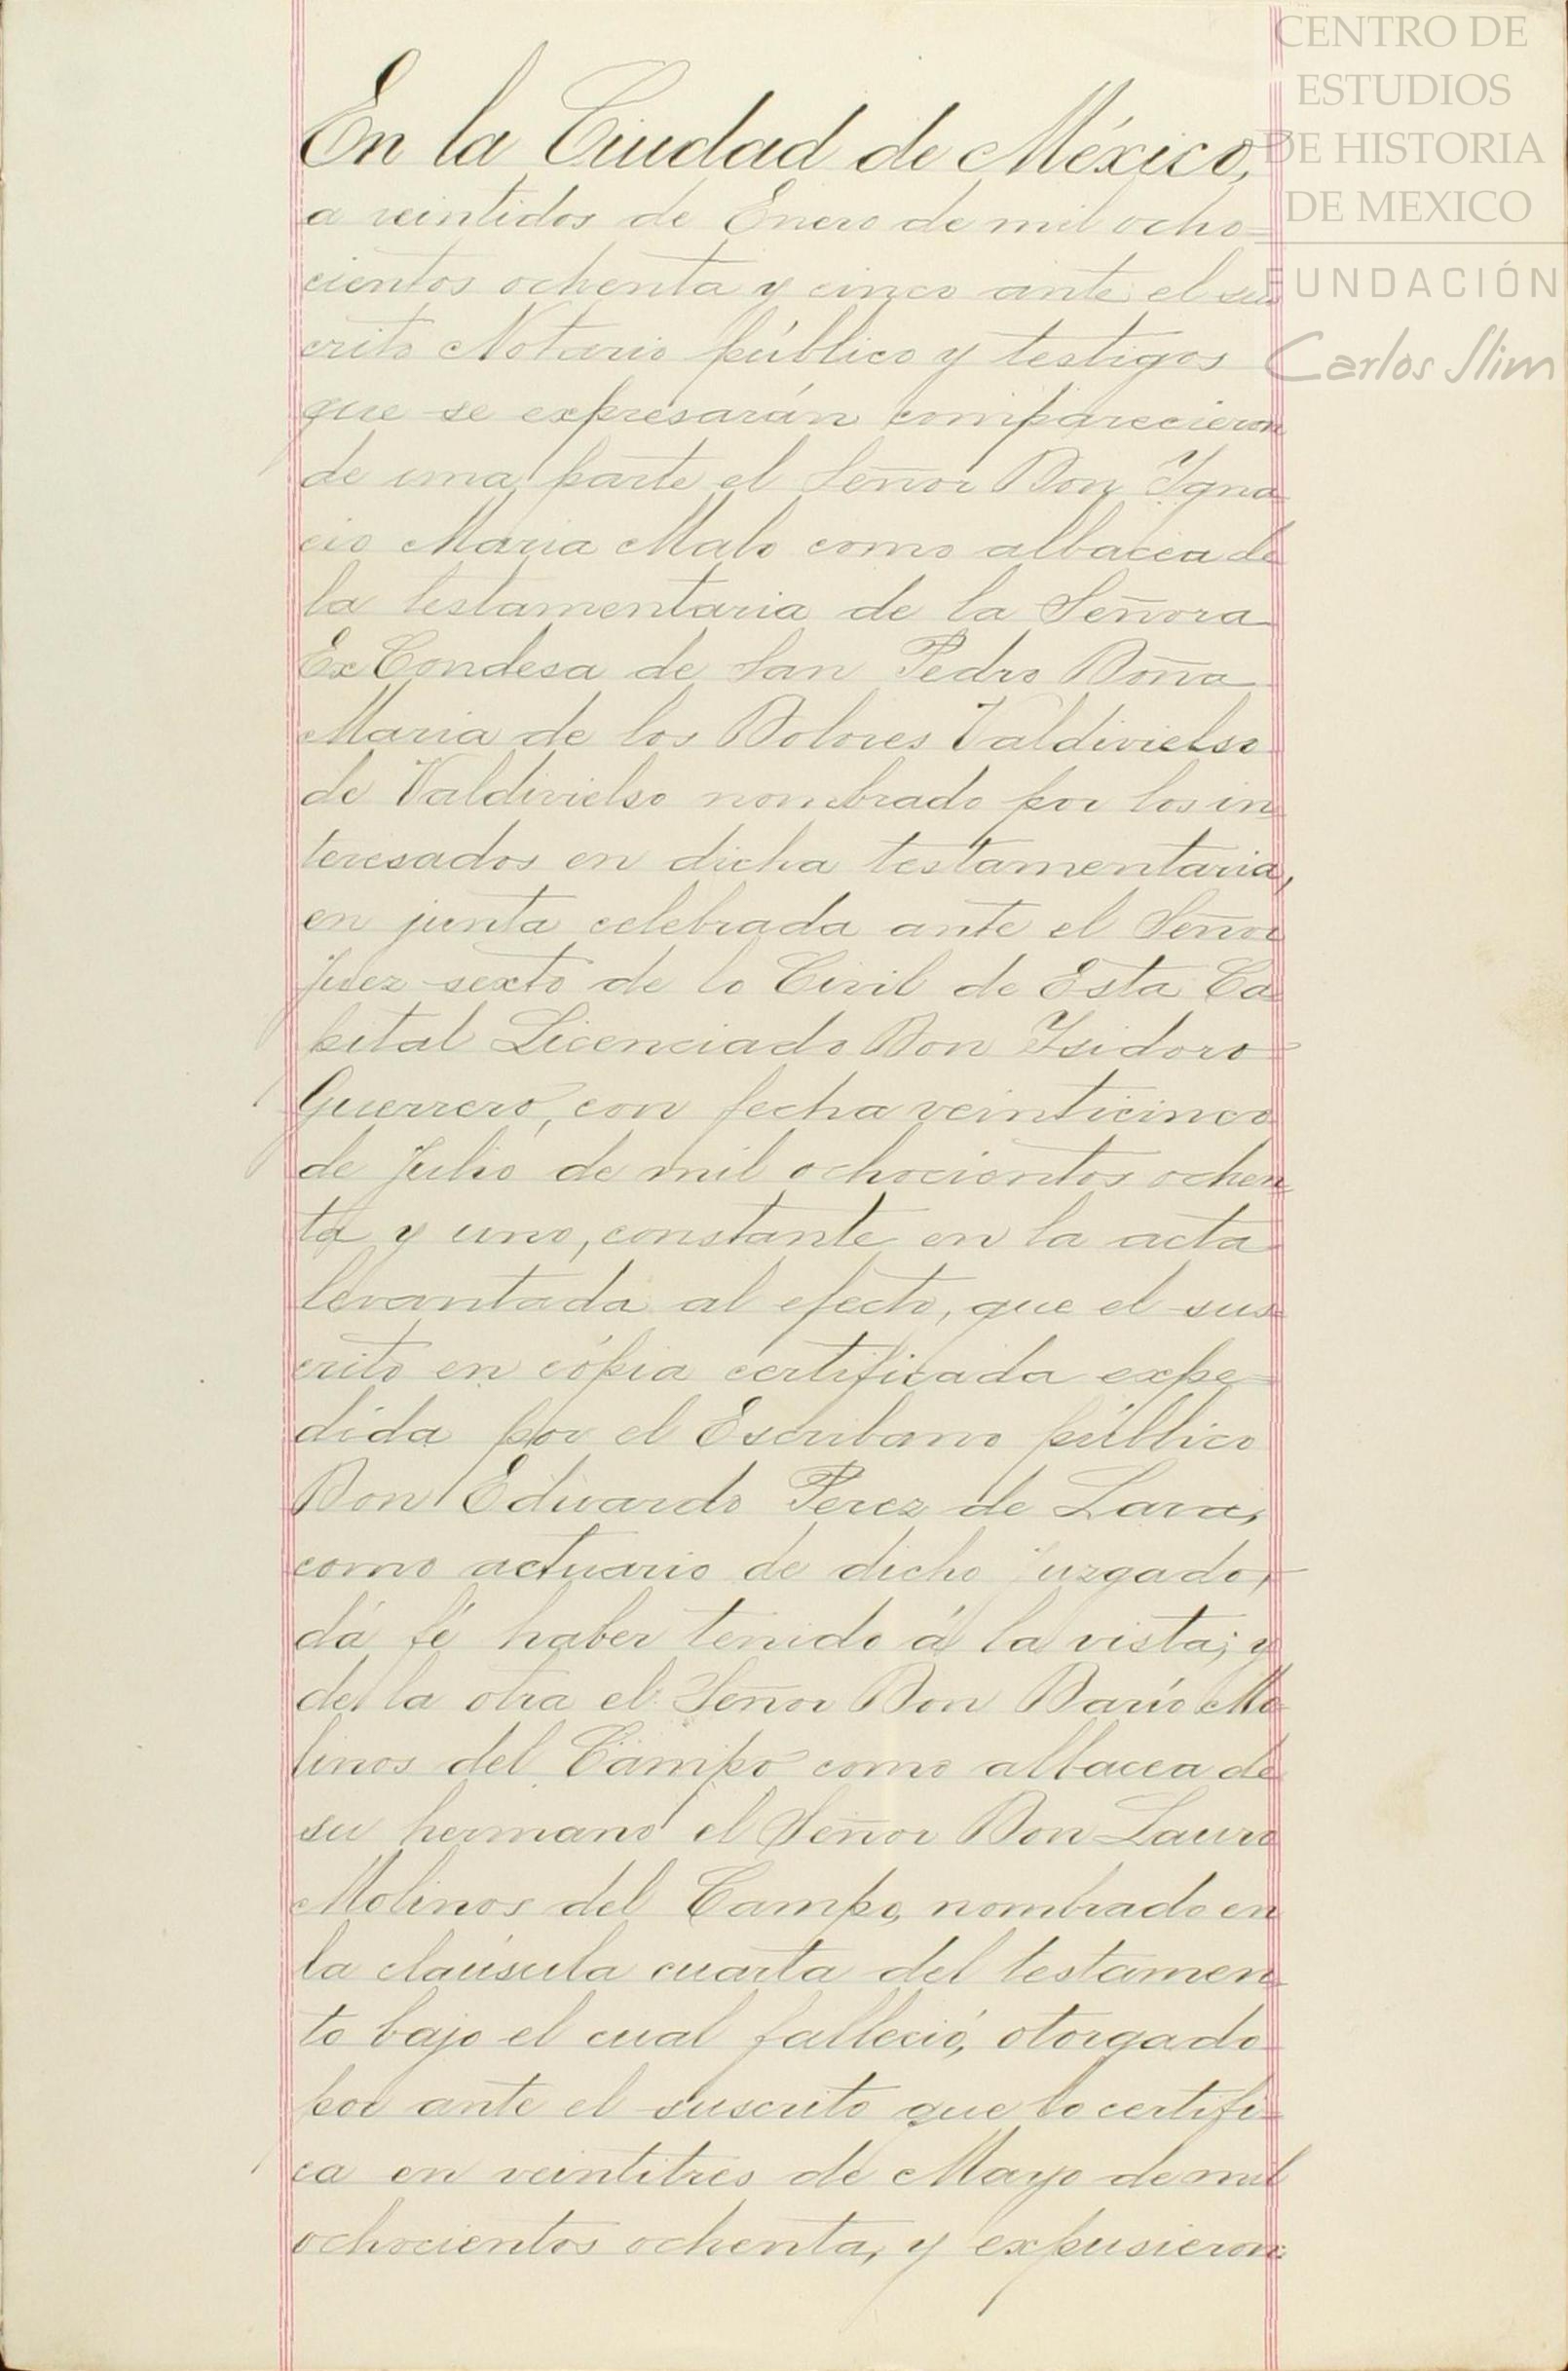 En la Ciudad de México,
a veintidos de Enero de mil ocho=
cientos ochenta y cinco ante el sus
crito Notario público y testigos
que se expresarán comparecieron
de una parte el Señor Don Igna
cio Maria Malo como albacea de
la testamentaria de la Señora
Ex Condesa de San Pedro Doña
Maria de los Dolores Valdivielso
de Valdivielso nombrado por los in
teresados en dicha testamentaria,
en junta celebrada ante el Señor
Juez sexto de lo Civil de Esta Ca
pital Licenciado Don Isidoro
Guerrero, con fecha veinticinco
de Julio de mil ochocientos ochen
ta y uno, constante en la acta
levantada al efecto, que el sus
crito en cópia certificada expe=
dida por el Escribano público
Don Eduardo Perez de Lara,
como actuario de dicho juzgado,
dá fé haber tenido á la vista; y
de la otra el Señor Don Darío Mo
linos del Campo como albacea de
su hermano el Señor Don Lauro
Molinos del Campo, nombrado en
la claúsula cuarta del testamen
to bajo el cual falleció, otorgado
por ante el suscrito que lo certifi=
ca en veintitres de Mayo de mil
ochocientos ochenta, y expusieron:
CENTRO DE
ESTUDIOS
DE HISTORIA
DE MEXICO
FUNDACIÓN
Carlos Slim